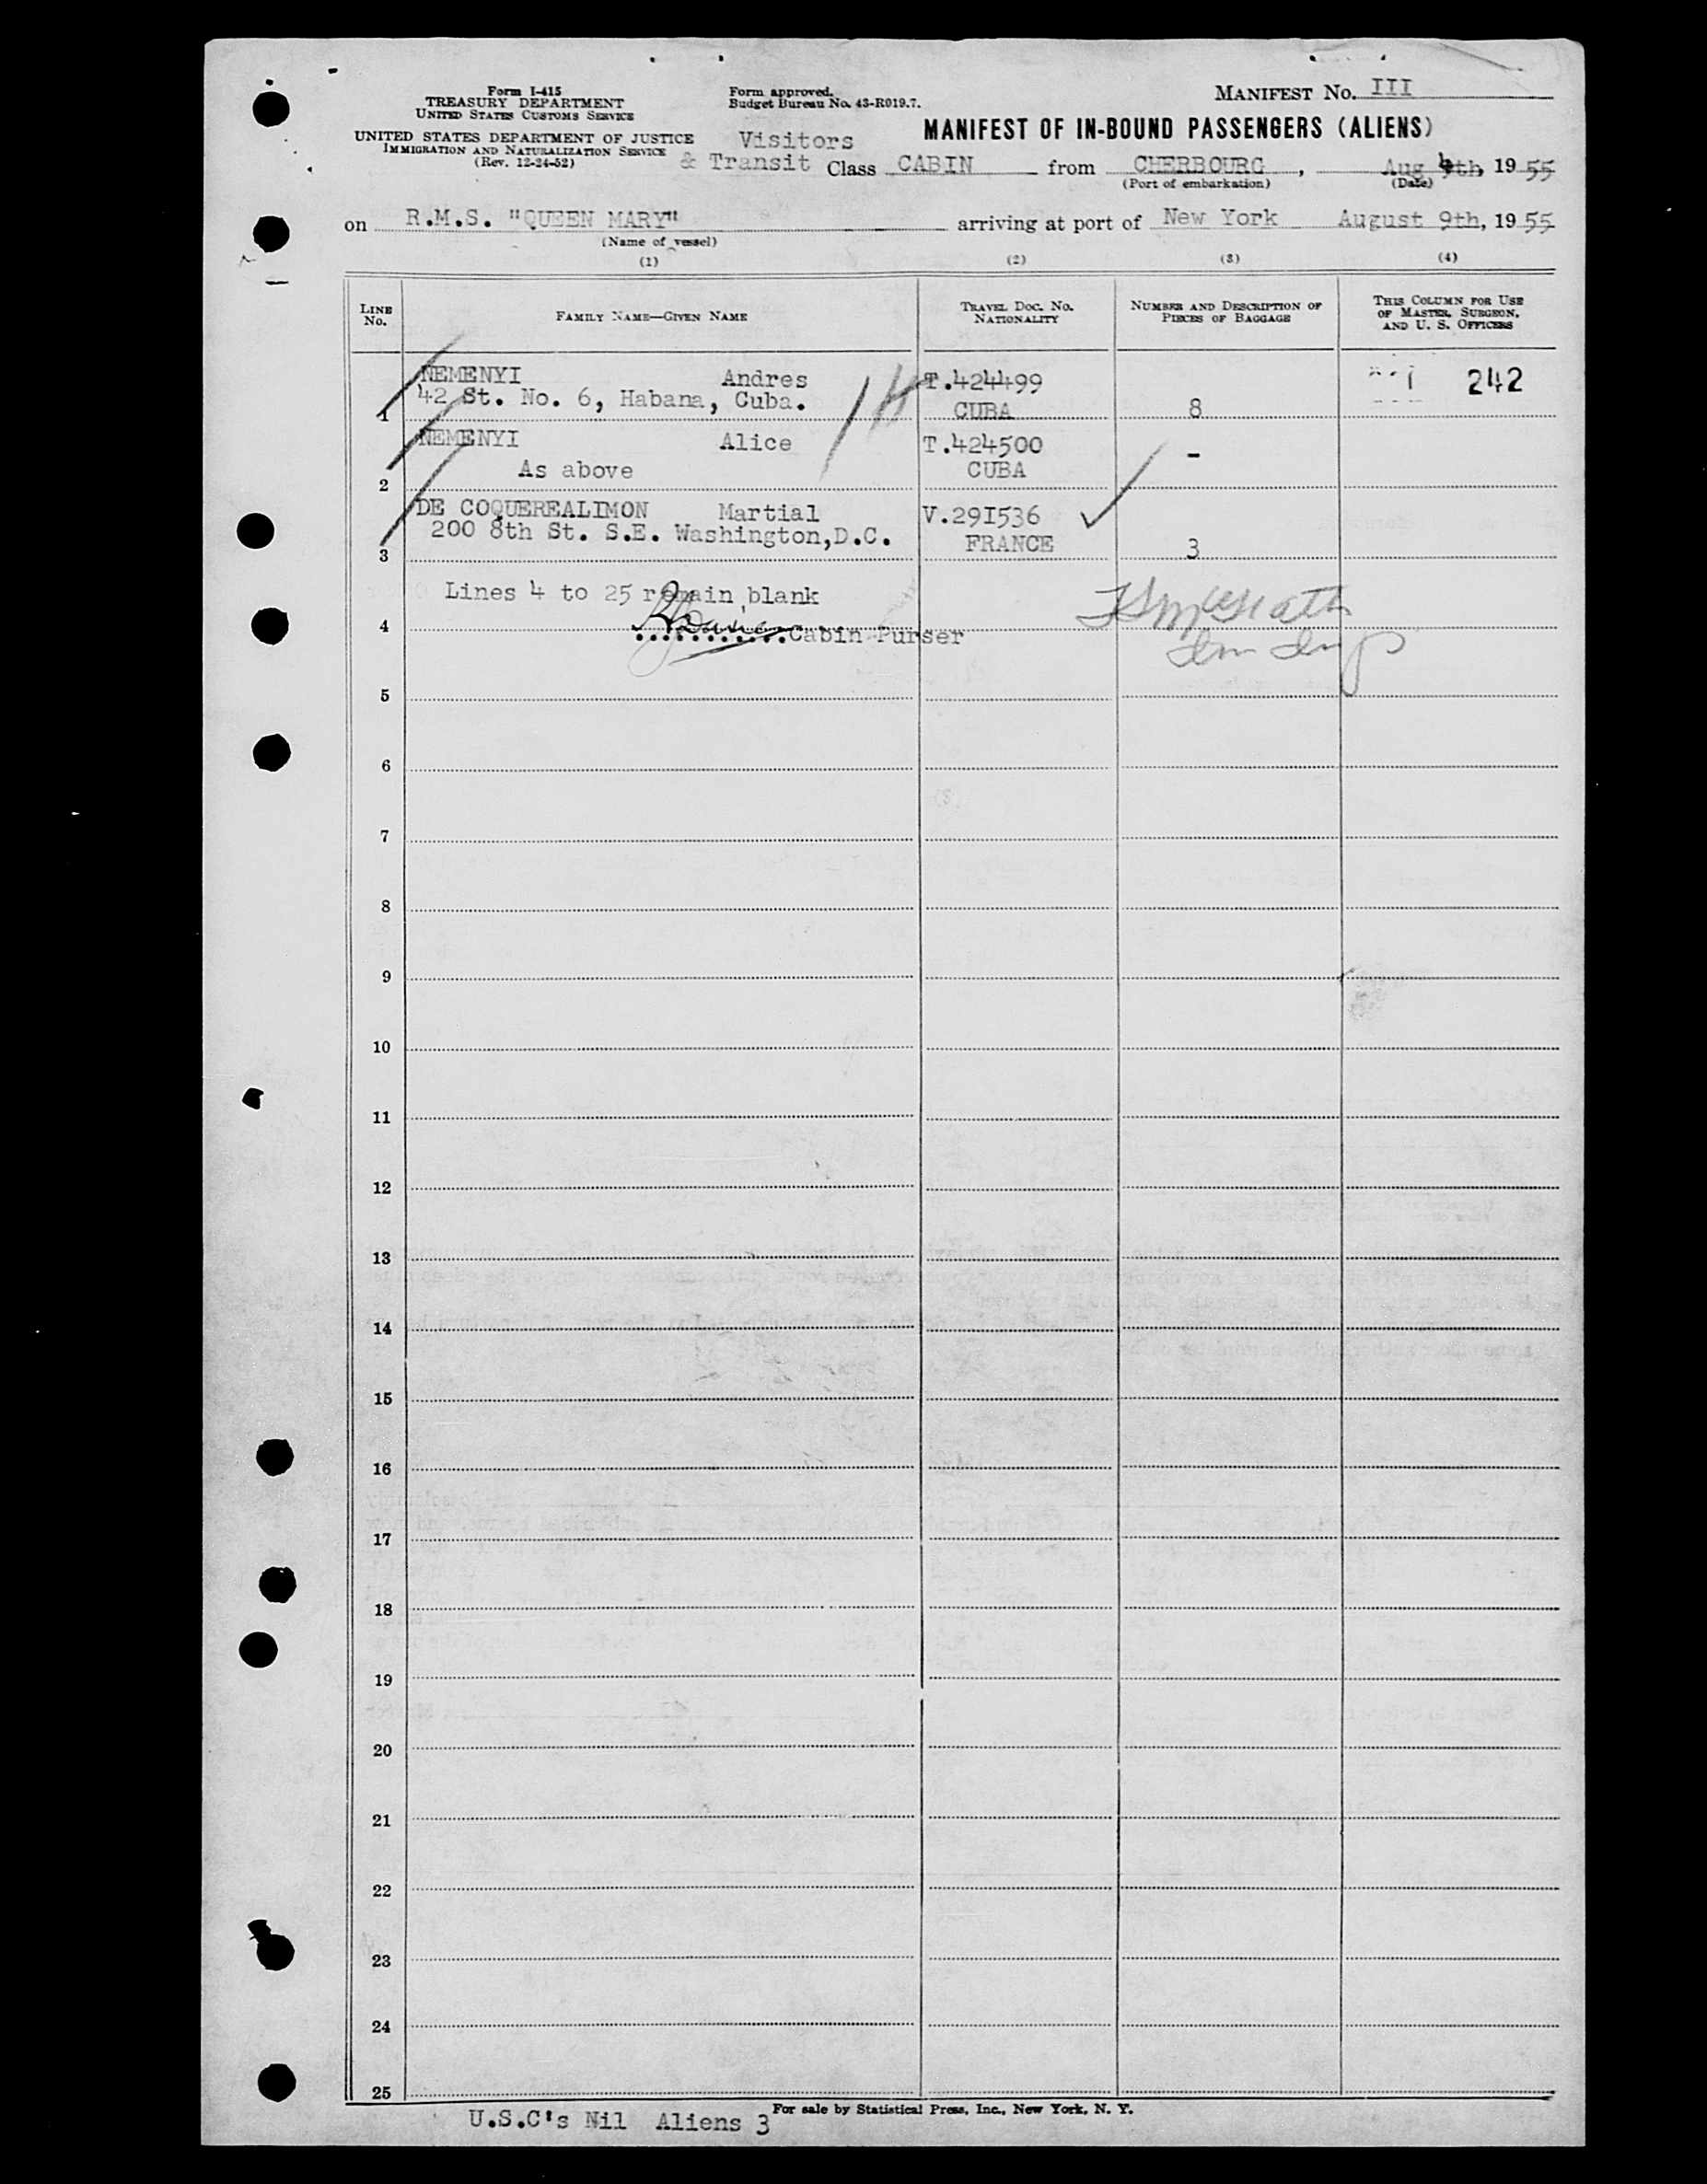 Form I-415
TREASURY DEPARTMENT
UNITED STATES CUSTOMS SERVICE
UNITED STATES DEPARTMENT OF JUSTICE
IMMIGRATION AND NATURALIZATION SERVICE
(Rev. 12-24-52)
Form approved.
Budget Bureau No. 43-R019.7.
MANIFEST No. III
MANIFEST OF IN-BOUND PASSENGERS (ALIENS)
Visitors
& Transit Class CABIN from CHERBOURG, Aug 4th, 1955
(Port of embarkation) (Date)
on R.M.S. "QUEEN MARY" arriving at port of New York August 9th, 1955
(Name of vessel)
(1) (2) (3) (4)
LINE No. FAMILY NAME—GIVEN NAME TRAVEL DOC. NO. NATIONALITY NUMBER AND DESCRIPTION OF PIECES OF BAGGAGE THIS COLUMN FOR USE OF MASTER, SURGEON, AND U. S. OFFICERS
NEMENYI Andres T.424499 242
42 St. No. 6, Habana, Cuba.
1 CUBA 8
NEMENYI Alice T.424500 -
As above CUBA
2
DE COQUEREALIMON Martial V.29I536
200 8th St. S.E. Washington,D.C. FRANCE
3 3
Lines 4 to 25 remain blank
4 ...........Cabin Purser
5
6
7
8
9
10
11
12
13
14
15
16
17
18
19
20
21
22
23
24
25
For sale by Statistical Press, Inc., New York, N. Y.
U.S.C's Nil Aliens 3